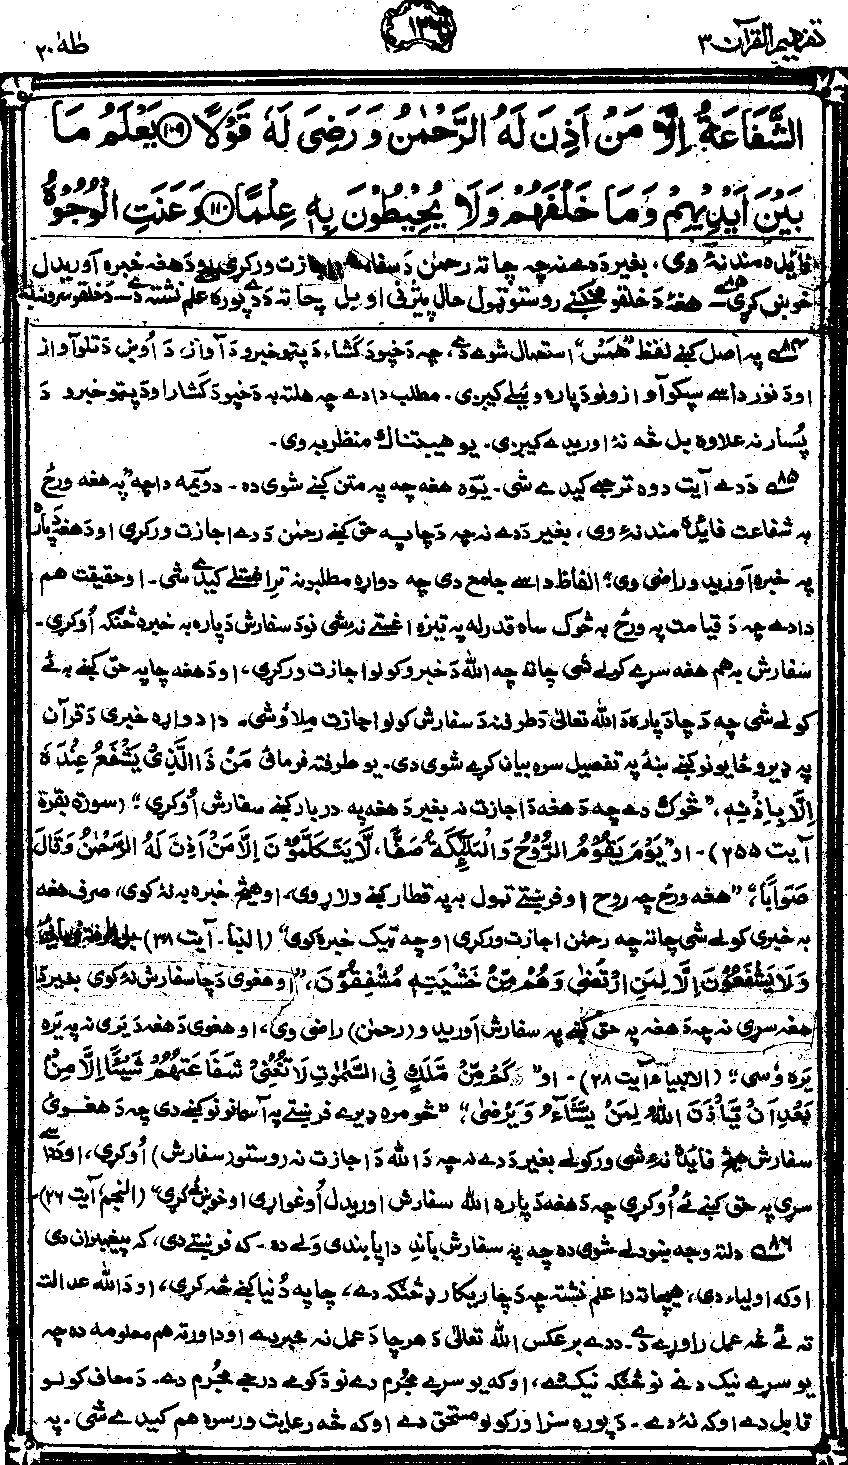 تفهیم القرآن ۳
طٰهٰ ۲۰
الشَّفَاعَةُ اِلَّا مَنْ اَذِنَ لَهُ الرَّحْمٰنُ وَرَضِیَ لَهٗ قَوْلًا ۱۰۹ یَعْلَمُ مَا
بَیْنَ اَیْدِیْهِمْ وَمَا خَلْفَهُمْ وَلَا یُحِیْطُوْنَ بِهٖ عِلْمًا ۱۱۰ وَعَنَتِ الْوُجُوْهُ
فائده مند نۀ وی، بغیر د دے نه چه چا ته رحمٰن د سفارش اجازت ورکړی او د هغه خبره اوریدل
خوښ کړی هغۀ د خلقو مخکنے روستو ټول حال پیژنی او بل چا ته د دے پوره علم نشته دے د خلقو سرونه به
۸۴ په اصل کښے لفظ ”هَمْس“ استعمال شوے دے، چه د خپو د کشاء د پټو خبرو د آواز، د اُوښ د تلو آواز
او د نور داسے سپکو آوازونو دپاره وئیلے کیږی. مطلب دا دے چه هلته به د خپو د کشار او د پټو خبرو د
پُسار نه علاوه بل څه نۀ اوریدے کیږی. یو هیبتناک منظر به وی.
۸۵ د دے آیت دوه ترجمے کیدے شی. یوه هغه چه په متن کښے شوی ده. دوئیمه دا چه ”په هغه ورځ
به شفاعت فائده مند نۀ وی، بغیر د دے نه چه د چا په حق کښے رحمٰن د دے اجازت ورکړی او د هغه دپاره
په خبره اوریدو راضی وی“ الفاظ داسے جامع دی چه دواړه مطلبونه ترا خستلے کیدے شی. او حقیقت هم
دا دے چه د قیامت په ورځ به څوک ساه قدرله په تیزه اغستے نۀ شی نو د سفارش دپاره به خبره څنګه اُوکړی.
سفارش به هم هغه سړے کولے شی چا ته چه الله د خبرو کولو اجازت ورکړی، او د هغه چا په حق کښے به ئے
کولے شی چه د چا دپاره د الله تعالیٰ د طرف نه د سفارش کولو اجازت ملاؤ شی. دا دواړه خبری د قرآن
په ډیرو ځایونو کښے ښۀ په تفصیل سره بیان کړے شوی دی. یو طرفته فرمائی مَنْ ذَا الَّذِیْ یَشْفَعُ عِنْدَهٗ
اِلَّا بِاِذْنِهٖ، ”څوک دے چه د هغه د اجازت نه بغیر د هغه په دربار کښے سفارش اُوکړی“ (سورة بقرة
آیت ۲۵۵). او ”یَوْمَ یَقُوْمُ الرُّوْحُ وَالْمَلٰٓئِکَةُ صَفًّا، لَّا یَتَکَلَّمُوْنَ اِلَّا مَنْ اَذِنَ لَهُ الرَّحْمٰنُ وَقَالَ
صَوَابًا“، ”هغه ورځ چه روح او فرښتے ټول به په قطار کښے ولاړ وی، او هیڅ خبره به نۀ کوی، صرف هغه
به خبری کولے شی چا ته چه رحمٰن اجازت ورکړی او چه ټیک خبره کوی“ (النبا. آیت ۳۸) بل طرفته فرمائی
وَلَا یَشْفَعُوْنَ اِلَّا لِمَنِ ارْتَضٰی وَهُمْ مِّنْ خَشْیَتِهٖ مُشْفِقُوْنَ، ”او هغوی د چا سفارش نۀ کوی بغیر د
هغه سړی نه چه د هغه په حق کښے په سفارش اوریدو (رحمٰن) راضی وی، او هغوی د هغه د یری نه په یره
یره وسی“ (الانبیاء آیت ۲۸). او ”کَمْ مِّنْ مَّلَکٍ فِی السَّمٰوٰتِ لَا تُغْنِیْ شَفَاعَتُهُمْ شَیْئًا اِلَّا مِنْۢ
بَعْدِ اَنْ یَّاْذَنَ اللهُ لِمَنْ یَّشَآءُ وَیَرْضٰی“ ”څومره ډیرے فرښتے په آسمانونو کښے دی چه د هغوی
سفارش هیڅ فائده نۀ شی ورکولے بغیر د دے نه چه د الله د اجازت نه روستو (سفارش) اُوکړی، او د داسے
سړی په حق کښے ئے اُوکړی چه د هغه دپاره الله سفارش اوریدل اُوغواړی او خوښ ئے کړی“ (النجم آیت ۲۶)
۸۶ دلته وجه ښودلے شوی ده چه په سفارش باندِ دا پابندی ولے ده. که فرښتے دی، که پیغمبران دی
او که اولیاء دی، هیچا ته دا علم نشته چه د چا ریکارډ څنګه دے، چا په دُنیا کښے څه کړی، او د الله عدالت
ته ئے څه عمل راوړے دے. د دے برعکس الله تعالیٰ د هر چا د عمل نه خبر دے او دا ورته هم معلومه ده چه
یو سړے نیک دے نو څنګه نیک دے، او که یو سړے مجرم دے نو د کومے درجے مجرم دے. د معاف کولو
قابل دے او که نۀ دے. د پوره سزا ورکولو مستحق دے او که څه رعایت ورسره هم کیدے شی. په